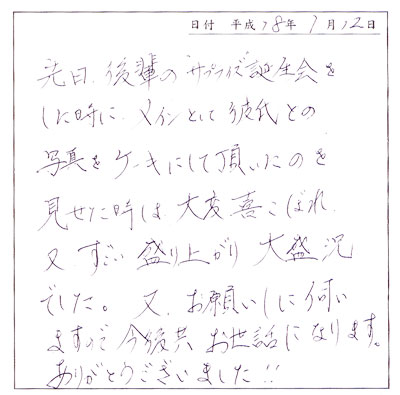 日付 平成18年1月12日
先日、後輩の サプライズ誕生会を
した時に、メインとして彼氏との
写真をケーキにして頂いたのを
見せた時は、大変喜こばれ、
又、すごい盛り上がり 大盛況
でした。又、お願いしに伺い
ますので今後共 お世話になります。
ありがとうございました!!